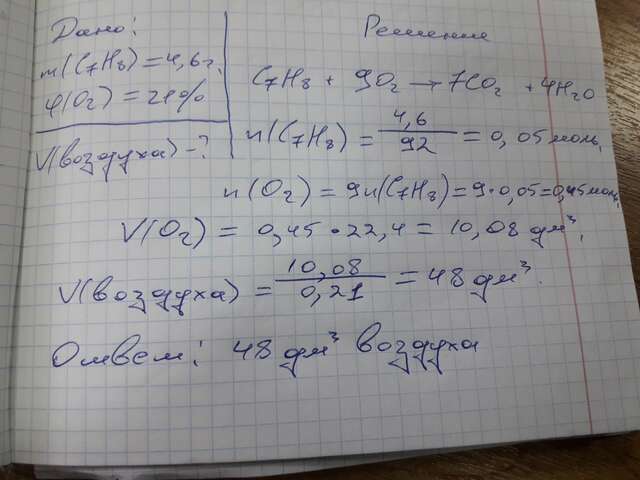 Дано:
m(C₇H₈) = 4,6 г.
φ(O₂) = 21%
V(воздуха) - ?
Решение
C₇H₈ + 9O₂ → 7CO₂ + 4H₂O
n(C₇H₈) = 4,6 / 92 = 0,05 моль,
n(O₂) = 9n(C₇H₈) = 9·0,05 = 0,45 моль,
V(O₂) = 0,45 · 22,4 = 10,08 дм³,
V(воздуха) = 10,08 / 0,21 = 48 дм³.
Ответ: 48 дм³ воздуха